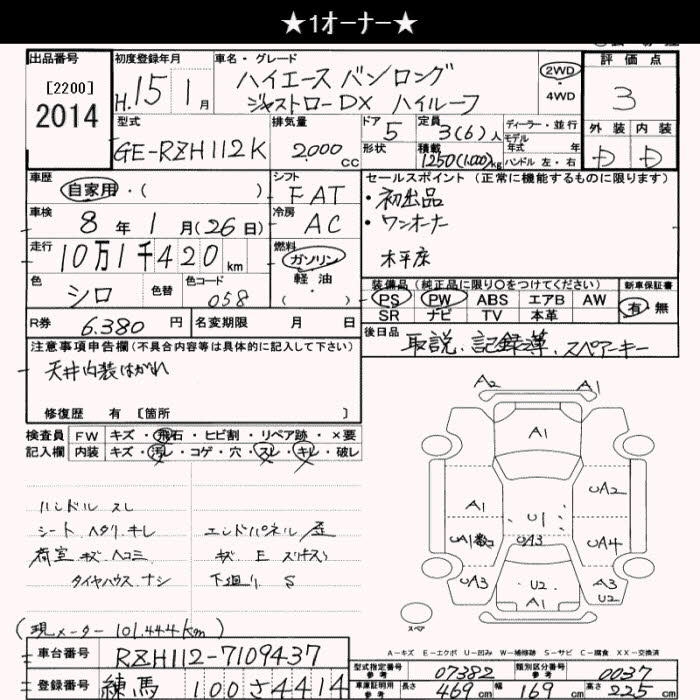 ★1オーナー★
出品番号
[2200]
2014
初度登録年月
H.15年1月
車名・グレード
ハイエース バン ロング
ジャストロー DX ハイルーフ
2WD
4WD
評価点
3
型式
GE-RZH112K
排気量
2,000cc
ドア
5
形状
定員
3(6)人
積載
1250(1,000)kg
ディーラー・並行
モデル年式 年式
ハンドル 左・右
外装
内装
D
D
車歴
自家用・( )
シフト
FAT
セールスポイント(正常に機能するものに限ります)
・初出品
・ワンオーナー
木平床
車検
8年1月(26日)
冷房
AC
走行
10万1千420km
燃料
ガソリン
軽油
( )
色
シロ
色替
色コード
058
装備品(純正品に限り○をつけてください)
PS PW ABS エアB AW
SR ナビ TV 本革
新車保証書
有・無
R券
6.380円
名変期限 月 日
後日品
取説、記録簿、スペアーキー
注意事項申告欄(不具合内容等は具体的に記入して下さい)
天井内装はがれ
修復歴 有 [箇所 ]
検査員記入欄
FW キズ・飛石・ヒビ割・リペア跡・×要
内装 キズ・汚レ・コゲ・穴・スレ・キレ・破レ
ハンドル スレ
シート ヘタリ、キレ
荷室 キズ ヘコミ
タイヤハウス ナシ
エンドパネル 歪
キズ E
下廻り S
A2 A1
A1
A1
UA2
U1
UA1
UA3
UA4
UA3
U2
A1
A3
U2
スペア
A－キズ E－エクボ U－凹み W－補修跡 S－サビ C－腐食 XX－交換済
(現メーター 101.444km)
車台番号
RZH112-7109437
登録番号
練馬 100 さ 4414
型式指定番号
参考
07382
類別区分番号
参考
0037
車庫証明用
参考
長さ
469cm
幅
169cm
高さ
225cm